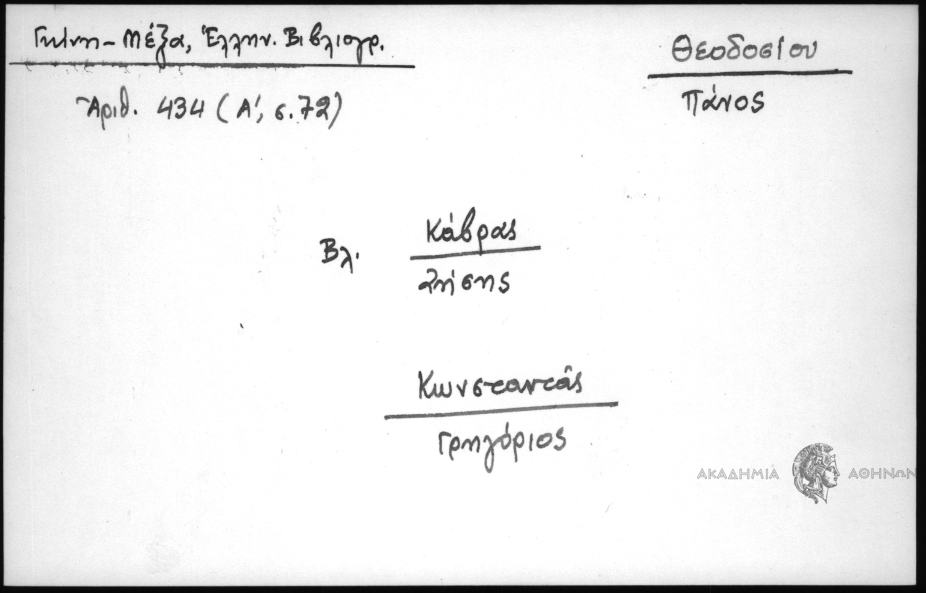 Γκίνη - Μέξα, Ἑλλην. Βιβλιογρ.
Ἀριθ. 434 (Α', σ. 72)
Θεοδοσίου
Πάνος
Βλ. Κάβρας
Ζήσης
Κωνσταντᾶς
Γρηγόριος
ΑΚΑΔΗΜΙΑ ΑΘΗΝΩΝ